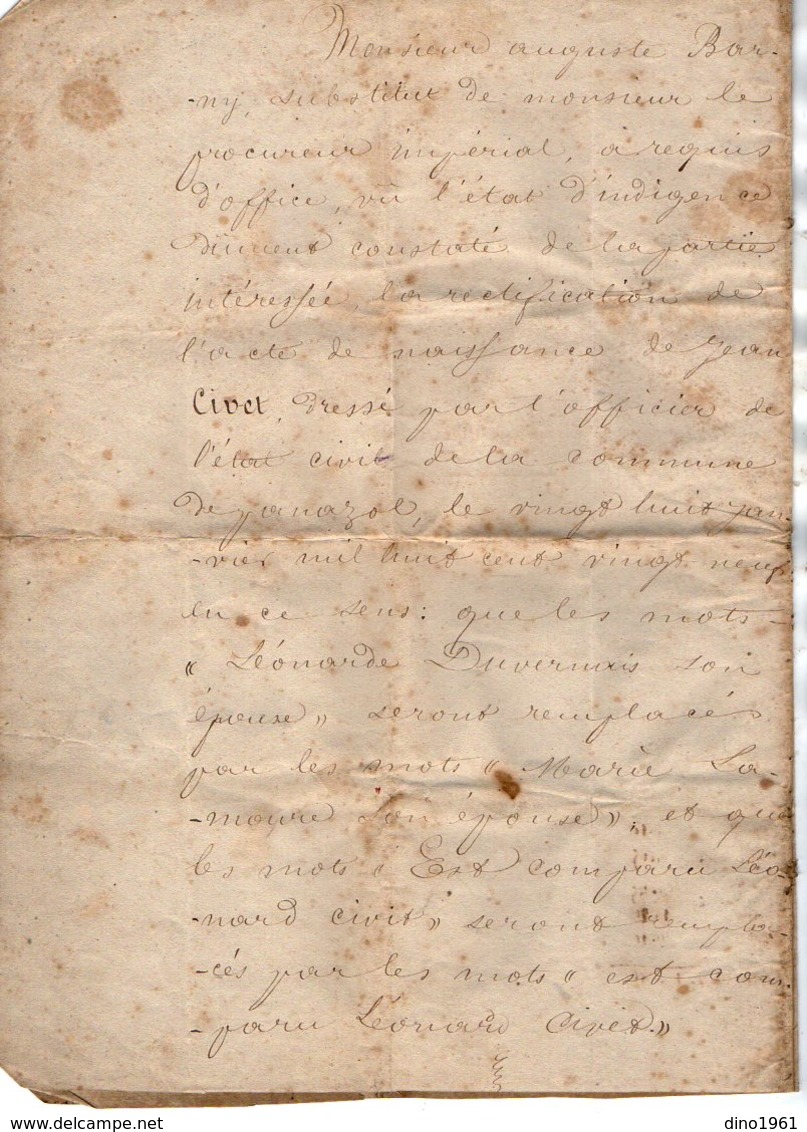 Monsieur auguste Bar-
-ny, substitut de monsieur le
procureur impérial, a requis
d'office, vû l'état d'indigence
dûment constaté de la partie
intéressée, la rectification de
l'acte de naissance de Jean
Civet, dressé par l'officier de
l'état civil de la commune
de panazol, le vingt huit jan-
-vier mil huit cent vingt neuf
en ce sens: que les mots
« Léonarde Duvernais son
épouse» seront remplacés
par les mots « Marie La-
-moure son épouse»; et que
les mots « Est comparu Léo-
-nard civit» seront rempla-
-cés par les mots « est com-
-paru Léonard Civet.»
dino1961